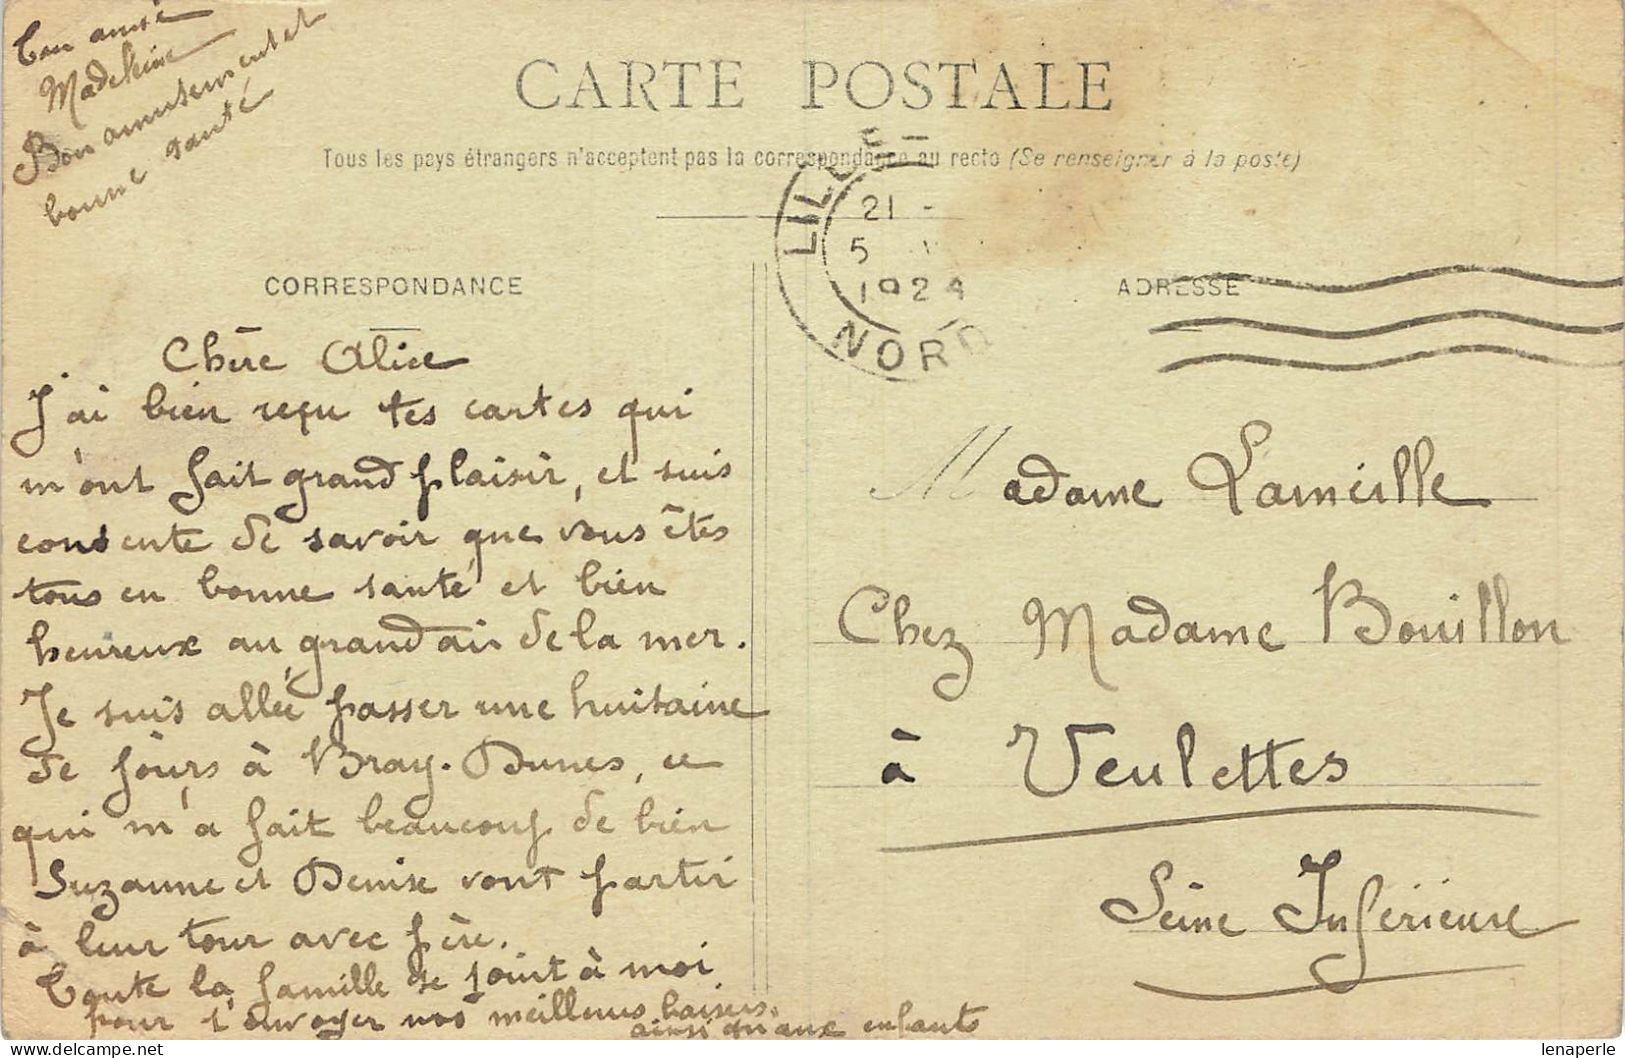 Ton amie
Madeleine
Bon amusement et
bonne santé
CARTE POSTALE
Tous les pays étrangers n'acceptent pas la correspondance au recto (Se renseigner à la poste)
LILLE
21
5
1924
NORD
CORRESPONDANCE
ADRESSE
Chère Alice
J'ai bien reçu tes cartes qui
m'ont fait grand plaisir, et suis
contente de savoir que vous êtes
tous en bonne santé et bien
heureux au grand air de la mer.
Je suis allée passer une huitaine
de jours à Bray-Dunes, ce
qui m'a fait beaucoup de bien
Suzanne et Denise vont partir
à leur tour avec père.
Toute la famille se joint à moi
pour t'envoyer nos meilleurs baisers.
ainsi qu'aux enfants
Madame
Chez Madame Bouillon
à Veulettes
Seine Inférieure
lenaperle